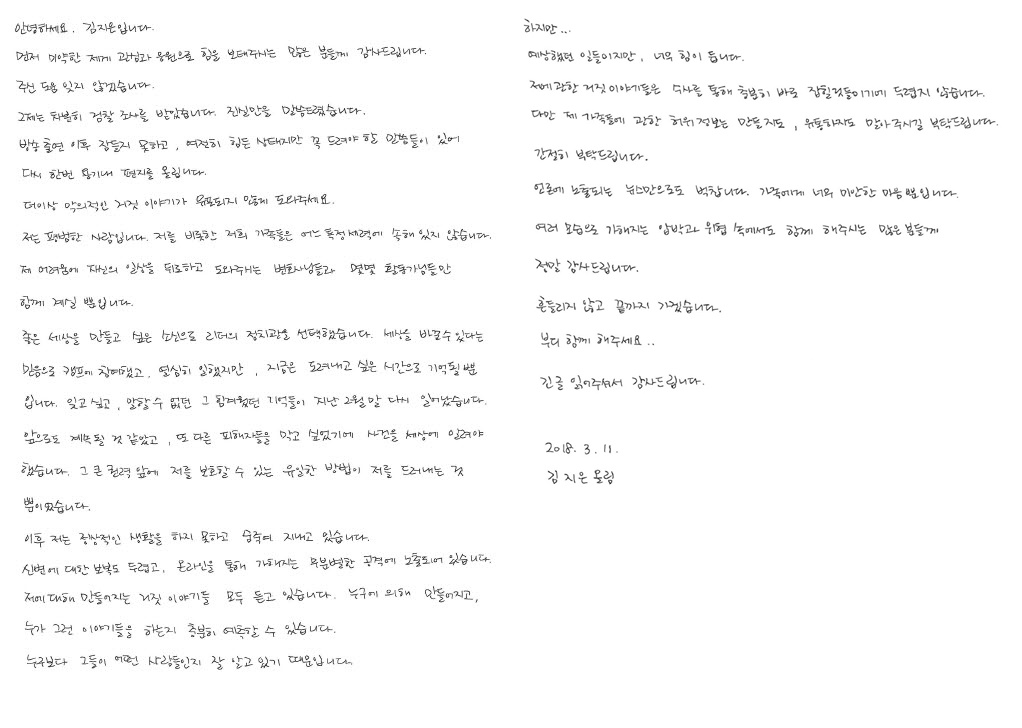 안녕하세요. 김지은입니다.
먼저 미약한 제게 관심과 응원으로 힘을 보태주시는 많은 분들께 감사드립니다.
주신 도움 잊지 않겠습니다.
그제는 차분히 검찰 조사를 받았습니다. 진실만을 말씀드렸습니다.
방송 출연 이후 잠들지 못하고, 여전히 힘든 상태지만 꼭 드려야 할 말씀들이 있어
다시 한번 용기내 편지를 올립니다.
더이상 악의적인 거짓 이야기가 유포되지 않게 도와주세요..
저는 평범한 사람입니다. 저를 비롯한 저희 가족들은 어느 특정 세력에 속해 있지 않습니다.
제 어려움에 자신의 일상을 뒤로하고 도와주시는 변호사님들과 몇몇 활동가님들만
함께 계실 뿐입니다.
좋은 세상을 만들고 싶은 소신으로 리더의 정치관을 선택했습니다. 세상을 바꿀 수 있다는
믿음으로 캠프에 참여했고, 열심히 일했지만, 지금은 도려내고 싶은 시간으로 기억될 뿐
입니다. 잊고 싶고, 말할 수 없던 그 힘겨웠던 기억들이 지난 2월 말 다시 일어났습니다.
앞으로도 계속될 것 같았고, 또 다른 피해자들을 막고 싶었기에 사건을 세상에 알려야
했습니다. 그 큰 권력 앞에 저를 보호할 수 있는 유일한 방법이 저를 드러내는 것
뿐이었습니다.
이후 저는 정상적인 생활을 하지 못하고 숨죽여 지내고 있습니다.
신변에 대한 보복도 두렵고, 온라인을 통해 가해지는 무분별한 공격에 노출되어 있습니다.
저에 대해 만들어지는 거짓 이야기들 모두 듣고 있습니다. 누구에 의해 만들어지고,
누가 그런 이야기들을 하는지 충분히 예측할 수 있습니다.
누구보다 그들이 어떤 사람들인지 잘 알고 있기 때문입니다.
하지만...
예상했던 일들이지만, 너무 힘이 듭니다.
저에 관한 거짓 이야기들은 수사를 통해 충분히 바로 잡힐것들이기에 두렵지 않습니다.
다만 제 가족들에 관한 허위 정보는 만들지도, 유통하지도 말아주시길 부탁드립니다.
간절히 부탁드립니다.
언론에 노출되는 뉴스만으로도 벅찹니다. 가족에게 너무 미안한 마음 뿐입니다.
여러 모습으로 가해지는 압박과 위협 속에서도 함께 해주시는 많은 분들께
정말 감사드립니다.
흔들리지 않고 끝까지 가겠습니다.
부디 함께 해주세요..
긴글 읽어주셔서 감사드립니다.
2018. 3. 11.
김지은 올림